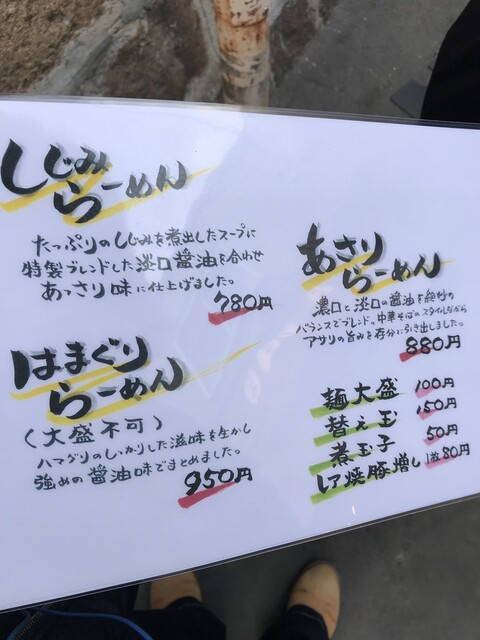 しじみ
らーめん
たっぷりのしじみを煮出したスープに
特製ブレンドした淡口醤油を合わせ
あっさり味に仕上げました。
780円
はまぐり
らーめん
(大盛不可)
ハマグリのしっかりした滋味を生かし
強めの醤油味でまとめました。
950円
あさり
らーめん
濃口と淡口の醤油を絶妙の
バランスでブレンド。中華そばのスタイルながら
アサリの旨みを存分に引き出しました。
880円
麺大盛 100円
替え玉 150円
煮玉子 50円
レア焼豚増し 1枚80円